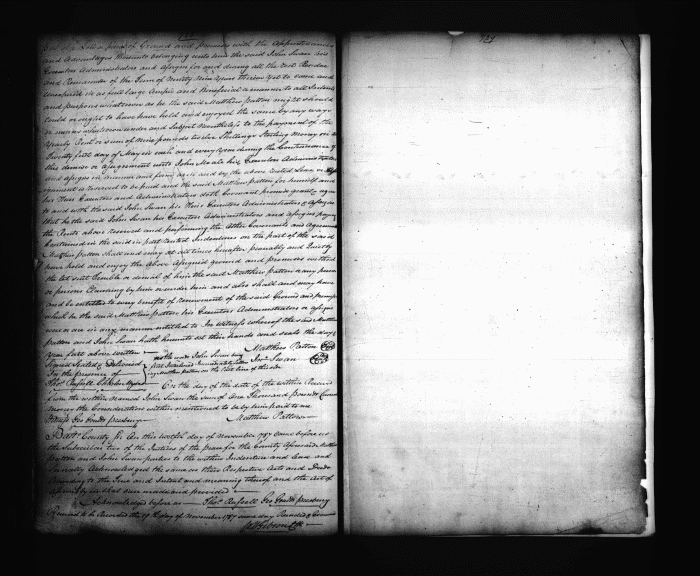 part of a Lot or piece of Ground and premises with the Appurtenances
and Advantages thereunto belonging unto him the said John Swan his
Executors Administrators and Assigns for and during all the rest Residue
and Remainder of the Term of Ninety Nine Years thereon yet to come and
unexpired in as full large Ample and Beneficial a manner to all Intents
and purposes whatsoever as he the said Matthew Patton might should
could or ought to have held and enjoyed the same by any ways
or means whatsoever under and Subject Nevertheless to the payment of the
Yearly Rent or sum of Nine pounds twelve Shillings Sterling Money on the
Twenty first day of May in each and every Year during the Continuance of
this demise or Assignment unto John Moale his Executors Administrators
and Assigns in manner and form as in and by the above recited Lease or
Assignment is reserved to be paid and the said Matthew Patton for himself and
his Heirs Executors and Administrators doth Covenant promise grant and agree
to and with the said John Swan his Heirs Executors Administrators & Assigns
that he the said John Swan his Executors Administrators and Assigns paying
the Rents above reserved and performing the other Covenants and Agreements
Contained in the said in part recited Indentures on the part of the said
Matthew Patton shall and may at all times hereafter peaceably and Quietly
have hold and enjoy the above Assigned ground and premises without
the let suit trouble or denial of him the said Matthew Patton or any person
or persons Claiming by him or under him and also shall and may have
and be entitled to every benefit of renewment of the said Ground and premises
which he the said Matthew Patton his Executors Administrators or Assigns
were or are in any manner entitled to In Witness whereof the said Matthew
Patton and John Swan hath hereunto set their hands and seals the day &
Year first above written
Matthew Patton
Signed Sealed & Delivered
Jno. Swan
In the presence of
Thos. Russell
On the day of the date of the within Received
from the within Named John Swan the sum of One Thousand pounds Current
money the Consideration within mentioned to be by him paid to me
Witness Geo Gouldt. presbury
Matthew Patton
Balt. County ss. On this twelfth day of November 1787 came before us
the Subscribers two of the Justices of the peace for the County Aforesaid Matthew
Patton and John Swan parties to the within Indenture and and
Severally Acknowledged the same as their Respective Acts and Deeds
According to the True and Intent and meaning thereof and the Act of
Assembly in that case made and provided
Acknowledged before us Thos. Russell Geo Gouldt. presbury
Received to be Recorded the 19th day of November 1787 same day Recorded & Examined
Wm Gibson Clk